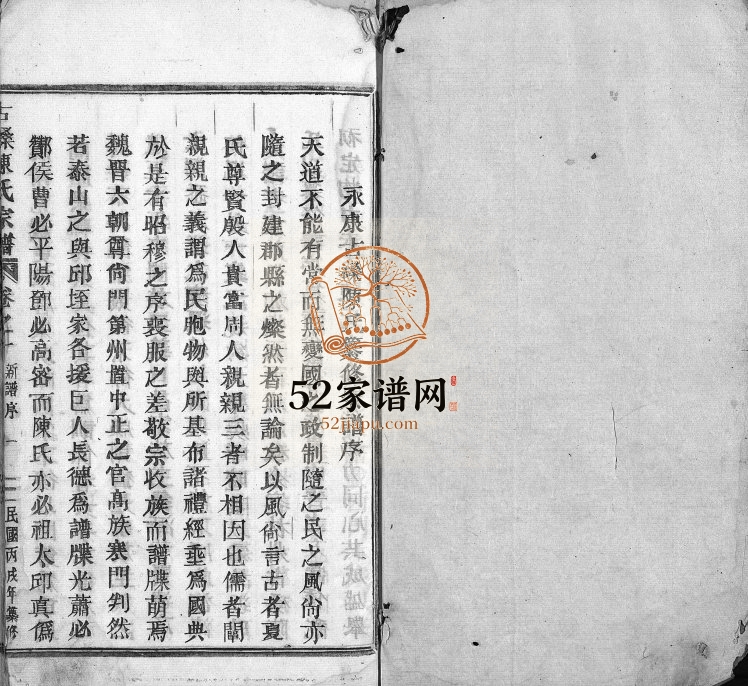 永康古𣝣陳氏纂修譜序
天道不能有常而無變國之政制隨之民之風尙亦
隨之封建郡縣之燦然者無論矣以風尙言古者夏
氏尊賢殷人貴富周人親親三者不相因也儒者闡
親親之義謂爲民胞物與所基布諸禮經垂爲國典
於是有昭穆之序喪服之差敬宗收族而譜牒萌焉
魏晉六朝尊尙門第州置中正之官高族寒門判然
若泰山之與邱垤家各援巨人長德爲譜牒光蕭必
酇侯曹必平陽鄧必高密而陳氏亦必祖太邱真僞
陳氏宗譜 卷之一 新譜序 一 民國丙戌年集修
52家谱网
52jiapu.com